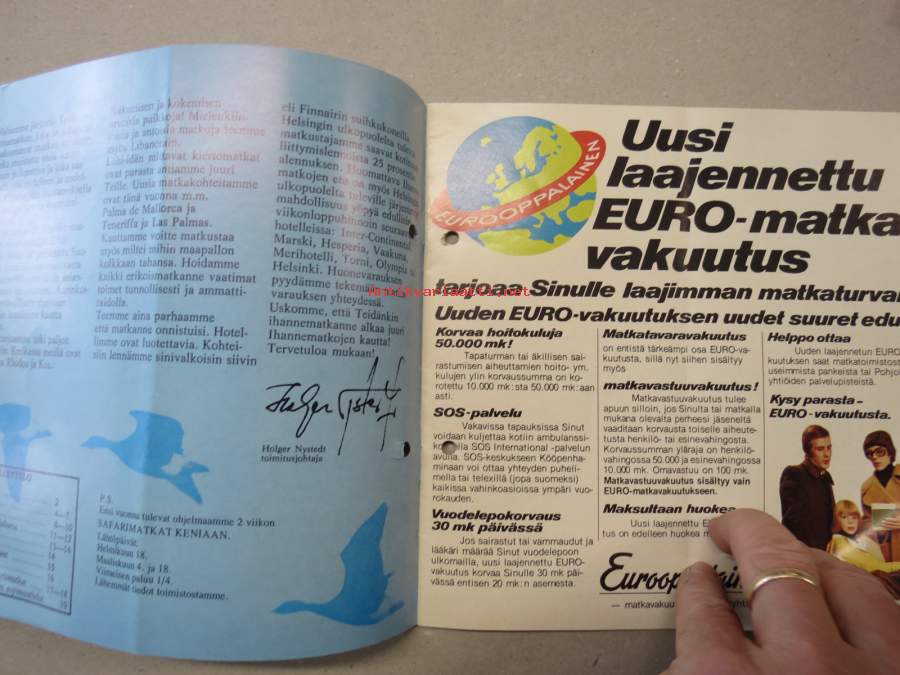 Näkemisen ja kokemisen
arvoisia paikkoja! Mielenkiin-
toisia ja antoisia matkoja teemme
myös Libanoniin.
Lähi-idän mittavat kiertomatkat
ovat parasta antiamme juuri
Teille. Uusia matkakohteitamme
ovat tänä vuonna m.m.
Palma de Mallorca ja
Teneriffa ja Las Palmas.
Kauttamme voitte matkustaa
myös miltei mihin maapallon
kolkkaan tahansa. Hoidamme
kaikki erikoismatkanne vaatimat
toimet tunnollisesti ja ammatti-
taidolla.
Teemme aina parhaamme
että matkanne onnistuisi. Hotel-
limme ovat luotettavia. Kohtei-
siin lennämme sinivalkoisin siivin
eli Finnairin suihkukoneilla.
Helsingin ulkopuolelta tulevat
matkustajamme saavat kotimaan
liittymislennoista 25 prosentin
alennuksen. Huomattava Ihanne-
matkojen etu on myös Helsingin
ulkopuolelta tuleville järjestetty
mahdollisuus yöpyä edullisin
viikonloppuhinnoin seuraavissa
hotelleissa: Inter-Continental,
Marski, Hesperia, Vaakuna,
Merihotelli, Torni, Olympia ja
Helsinki. Huonevarauksen
pyydämme tekemään
varauksen yhteydessä.
Uskomme, että Teidänkin
Ihannematkanne alkaa juuri
Ihannematkojen kautta!
Tervetuloa mukaan!
Holger Nystedt
toimitusjohtaja
P.S.
Ensi vuonna tulevat ohjelmaamme 2 viikon
SAFARIMATKAT KENIAAN.
Lähtöpäivät:
Helmikuun 18.
Maaliskuun 4. ja 18.
Viimeinen paluu 1/4.
Lähemmät tiedot toimistostamme.
EUROOPPALAINEN
Uusi
laajennettu
EURO-matka
vakuutus
tarjoaa Sinulle laajimman matkaturvan
Uuden EURO-vakuutuksen uudet suuret edu
Korvaa hoitokuluja
50.000 mk!
Tapaturman tai äkillisen sai-
rastumisen aiheuttamien hoito- ym.
kulujen ylin korvaussumma on ko-
rotettu 10.000 mk:sta 50.000 mk:aan
asti.
SOS-palvelu
Vakavissa tapauksissa Sinut
voidaan kuljettaa kotiin ambulanssi-
koneella SOS International -palvelun
avulla. SOS-keskukseen Kööpenha-
minaan voi ottaa yhteyden puheli-
mella tai telexillä (jopa suomeksi)
kaikissa vahinkoasioissa ympäri vuo-
rokauden.
Vuodelepokorvaus
30 mk päivässä
Jos sairastut tai vammaudut ja
lääkäri määrää Sinut vuodelepoon
ulkomailla, uusi laajennettu EURO-
vakuutus korvaa Sinulle 30 mk päi-
vässä entisen 20 mk:n asemesta.
Matkatavaravakuutus
on entistä tärkeämpi osa EURO-va-
kuutusta, sillä nyt siihen sisältyy
myös
matkavastuuvakuutus!
Matkavastuuvakuutus tulee
apuun silloin, jos Sinulta tai matkalla
mukana olevalta perheesi jäseneltä
vaaditaan korvausta toiselle aiheute-
tusta henkilö- tai esinevahingosta.
Korvaussumman yläraja on henkilö-
vahingossa 50.000 ja esinevahingossa
10.000 mk. Omavastuu on 100 mk.
Matkavastuuvakuutus sisältyy vain
EURO-matkavakuutukseen.
Maksultaan huokea
Uusi laajennettu E
tus on edelleen huokea m
Helppo ottaa
Uuden laajennetun EURO
kuutuksen saat matkatoimistost
useimmista pankeista tai Pohjol
yhtiöiden palvelupisteistä.
Kysy parasta –
EURO-vakuutusta.
Eurooppalain
— matkavaku